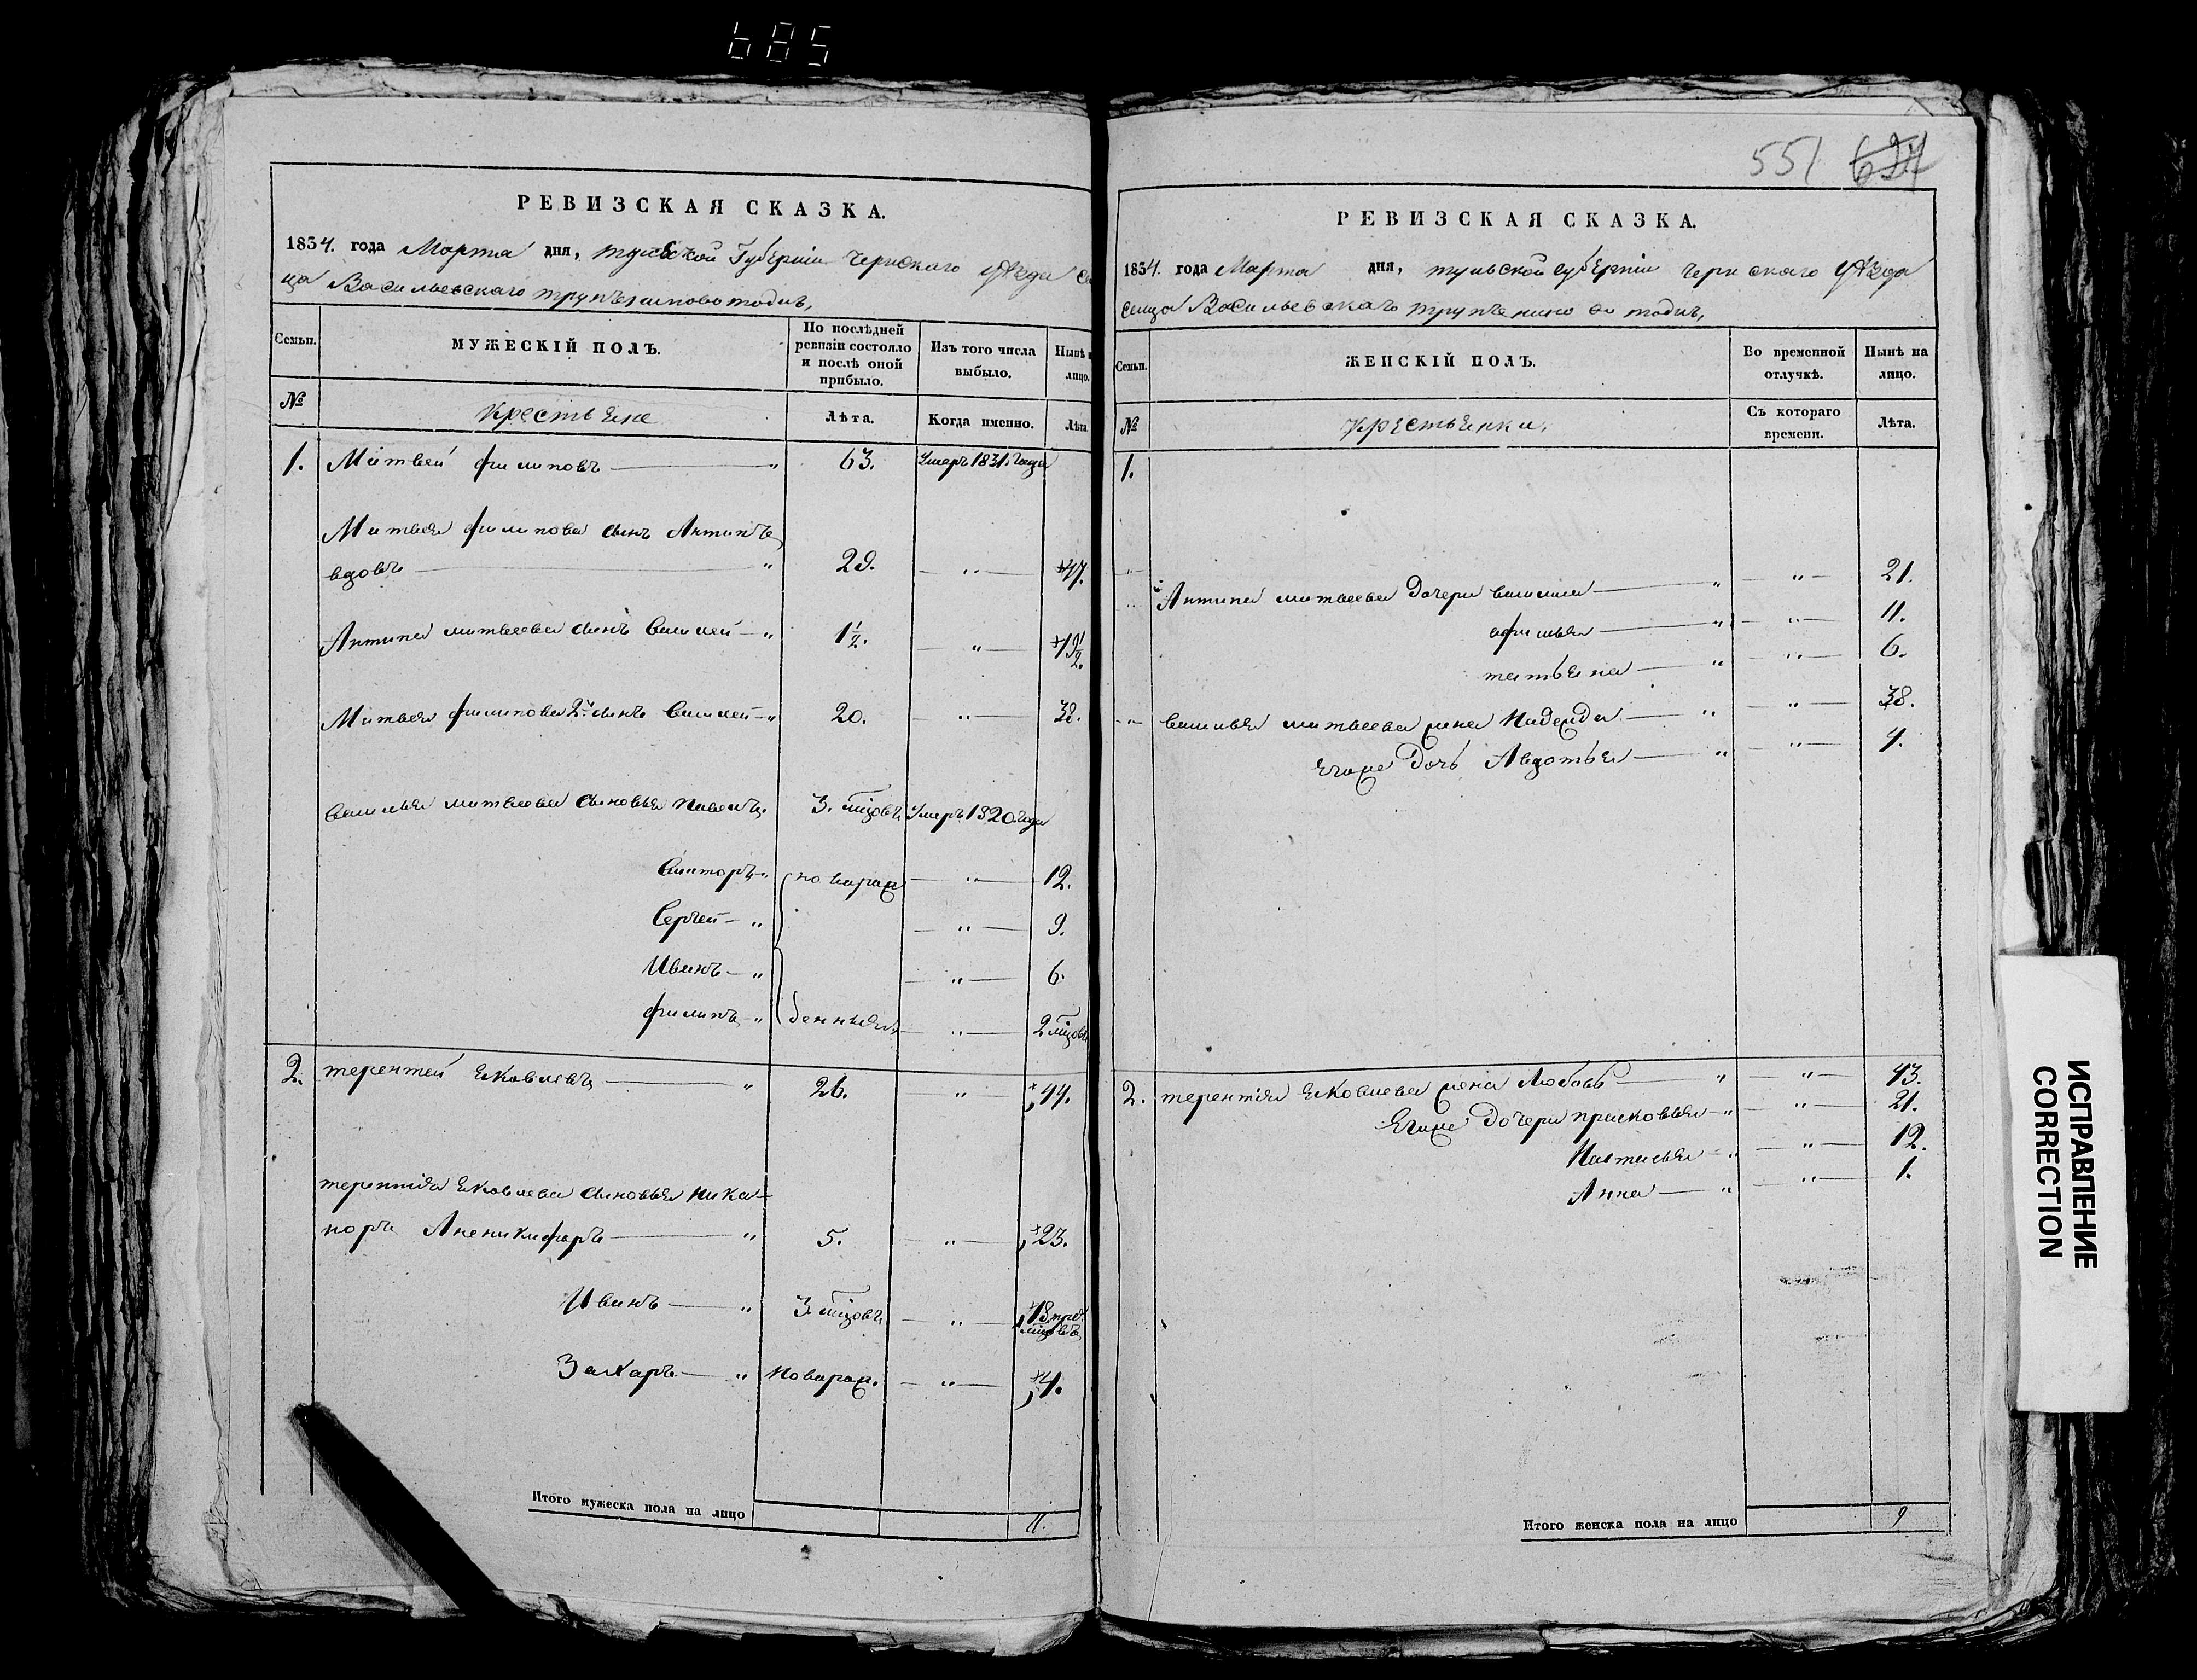 685
РЕВИЗСКАЯ СКАЗКА.
1834. года Марта дня, тульской Губерніи Чернскаго уѣзда се
ца Васильевскаго
Семьи.
МУЖЕСКІЙ ПОЛЪ.
По послѣдней ревизіи состояло и послѣ оной прибыло.
Изъ того числа выбыло.
Нынѣ н лицо.
№
Крестьяне
Лѣта.
Когда именно.
Лѣта.
1. Матвей филиповъ — " 63. Умеръ 1831. Года
Матвея филипова сынъ Антипъ
вдовъ — " 29. — " — 47.
Антипа матвеева сынъ Василей — " 1 1/2. — " — 19 1/2.
Матвея филипова 2й сынъ Василей — " 20. — " — 38.
Василья матвеева сыновья Павелъ. 3. мцовъ Умеръ 1820 года
Викторъ — " новорож — " — 12.
Сергей — " — " — 9.
Иванъ — " — " — 6.
филипъ — " денныя — " — 2 мцовъ
2. терентей Яковлевъ — " 26. — " — 44.
терентія Яковлева сыновья Ника-
норъ — " 5. — " — 23.
Иванъ — " 3 мцовъ — " — 18 мцовъ
Захаръ — " Новорож. — " — 4.
Итого мужеска пола на лицо 11.
551 624
РЕВИЗСКАЯ СКАЗКА.
1834. года Марта дня, тульской губерніи Чернскаго уѣзда
сельца Васильевскаго
Семьи.
ЖЕНСКІЙ ПОЛЪ.
Во временной отлучкѣ.
Нынѣ на лицо.
№
Крестьянки.
Съ котораго времени.
Лѣта.
1.
Антипа матвеева дочери — " — " — 21.
афимья — " — " — 11.
татьяна — " — " — 6.
Василья матвеева жена Надежда — " — " — 38.
Егоже дочь Авдотья — " — " — 4.
2. терентія Яковлева жена Любовь — " — " — 43.
Егоже дочери прасковья — " — " — 21.
Настасья — " — " — 12.
Анна — " — " — 1.
Итого женска пола на лицо 9
ИСПРАВЛЕНИЕ
CORRECTION